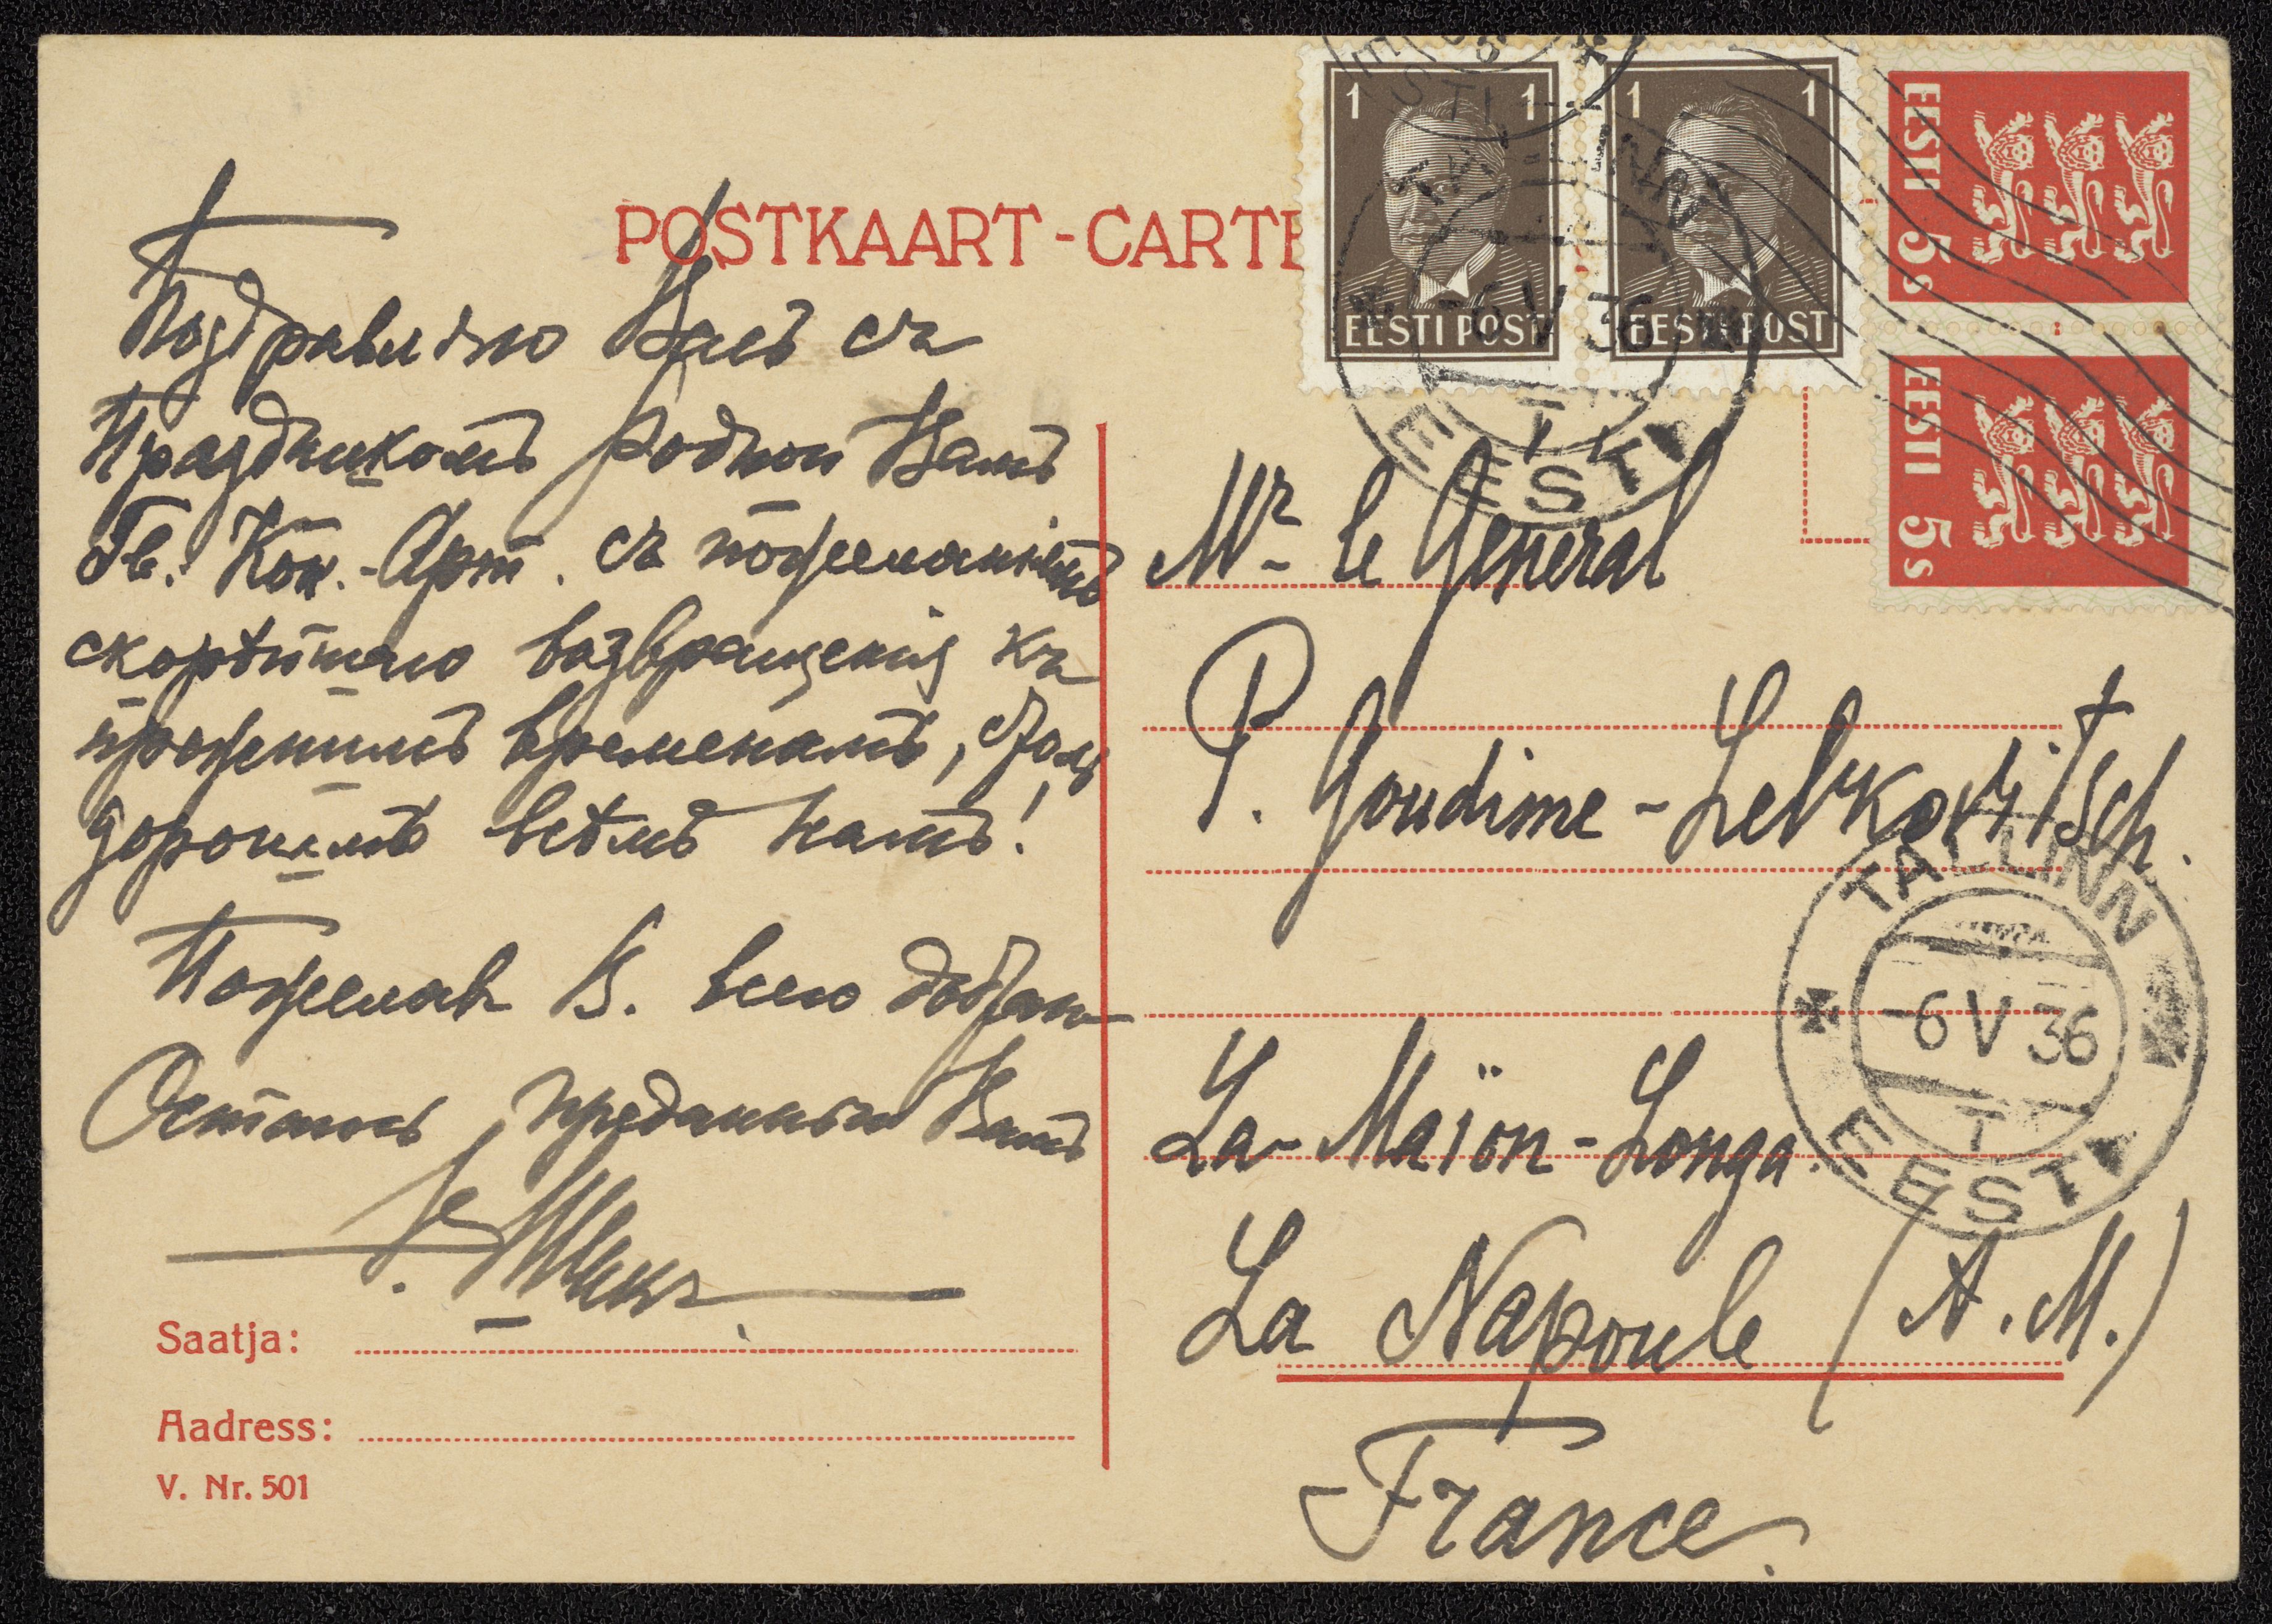 POSTKAART - CARTE
1 1
EESTI POST
1 1
EESTI POST
EESTI 5 s
EESTI 5 s
TALLINN
-6 V 36
EESTI
Поздравляю Васъ съ
Праздникомъ родной Вамъ
Гв. Кон.-Арт. съ пожеланіемъ
скорѣйшаго возвращенія къ
прежнимъ временамъ, столь
дорогимъ всѣмъ намъ!
Пожелавъ В. всего добраго
Остаюсь преданный Вамъ
Mr le General
P. Goudime-Levkovitsch.
La-Maïon-Longa.
La Napoule (A.M.)
France.
TALLINN
-6 V 36
T
EESTI
Saatja:
Aadress:
V. Nr. 501